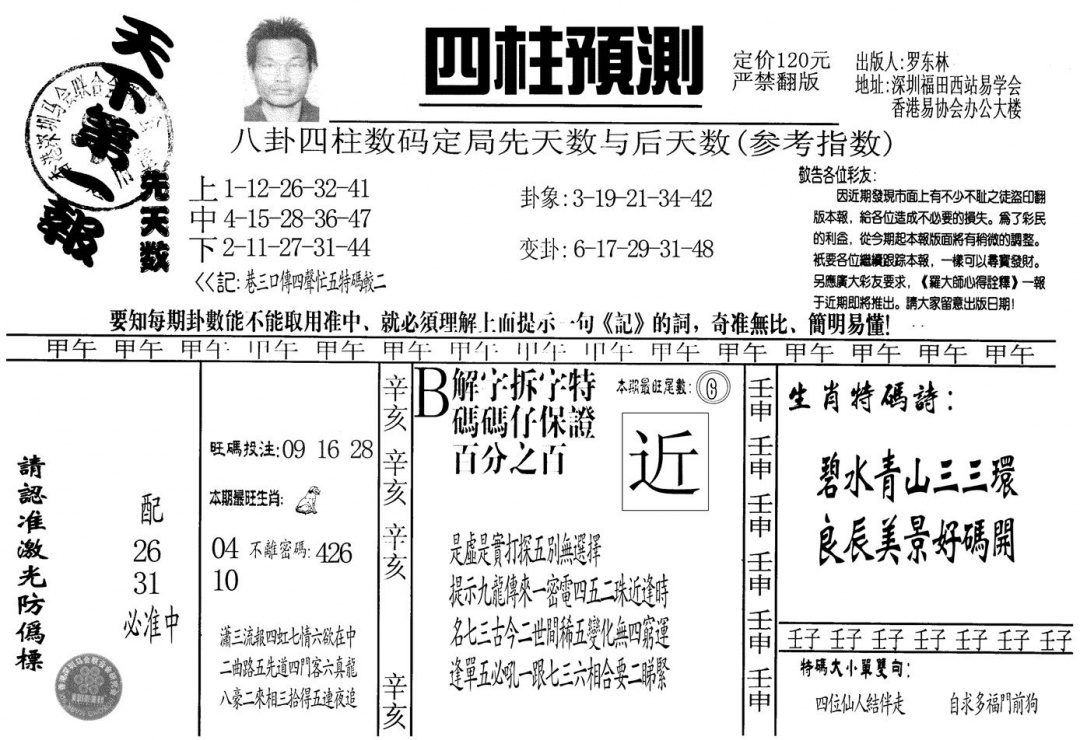 天下第一報
四柱預測
定价120元
严禁翻版
出版人:罗东林
地址:深圳福田西站易学会
香港易协会办公大楼
八卦四柱数码定局先天数与后天数(参考指数)
先天数
上 1-12-26-32-41
中 4-15-28-36-47
下 2-11-27-31-44
<<記:巷三口傳四聲忙五特碼較二
卦象:3-19-21-34-42
变卦:6-17-29-31-48
敬告各位彩友:
因近期發現市面上有不少不耻之徒盜印翻
版本報，給各位造成不必要的損失。爲了彩民
的利益，從今期起本報版面將有稍微的調整。
衹要各位繼續跟踪本報，一樣可以尋寶發財。
另應廣大彩友要求，《羅大師心得詮釋》一報
于近期即將推出。請大家留意出版日期!
要知每期卦數能不能取用准中、就必須理解上面提示一句《記》的詞，奇准無比、簡明易懂!
甲午 甲午 甲午 甲午 甲午 甲午 甲午 甲午 甲午 甲午 甲午 甲午 甲午 甲午 甲午
請認准激光防僞標
配
26
31
必准中
旺碼投注:09 16 28
本期最旺生肖:
04 不離密碼:426
10
瀟三流報四虹七情六欲在中
二曲路五先道四門客六真龍
八豪二來相三拾得五連夜追
辛亥
辛亥
辛亥
辛亥
B
解字拆字特
碼碼仔保證
百分之百
本期最旺尾數:
近
是虛是實打探五別無選擇
提示九龍傳來一密電四五二珠近逢時
名七三古今二世間稀五變化無四窮運
逢單五必吼一跟七三六相合要二睇緊
壬申
壬申
壬申
壬申
壬申
壬申
生肖特碼詩:
碧水青山三三環
良辰美景好碼開
壬子 壬子 壬子 壬子 壬子 壬子 壬子
特碼大小單雙向:
四位仙人結伴走 自求多福門前狗